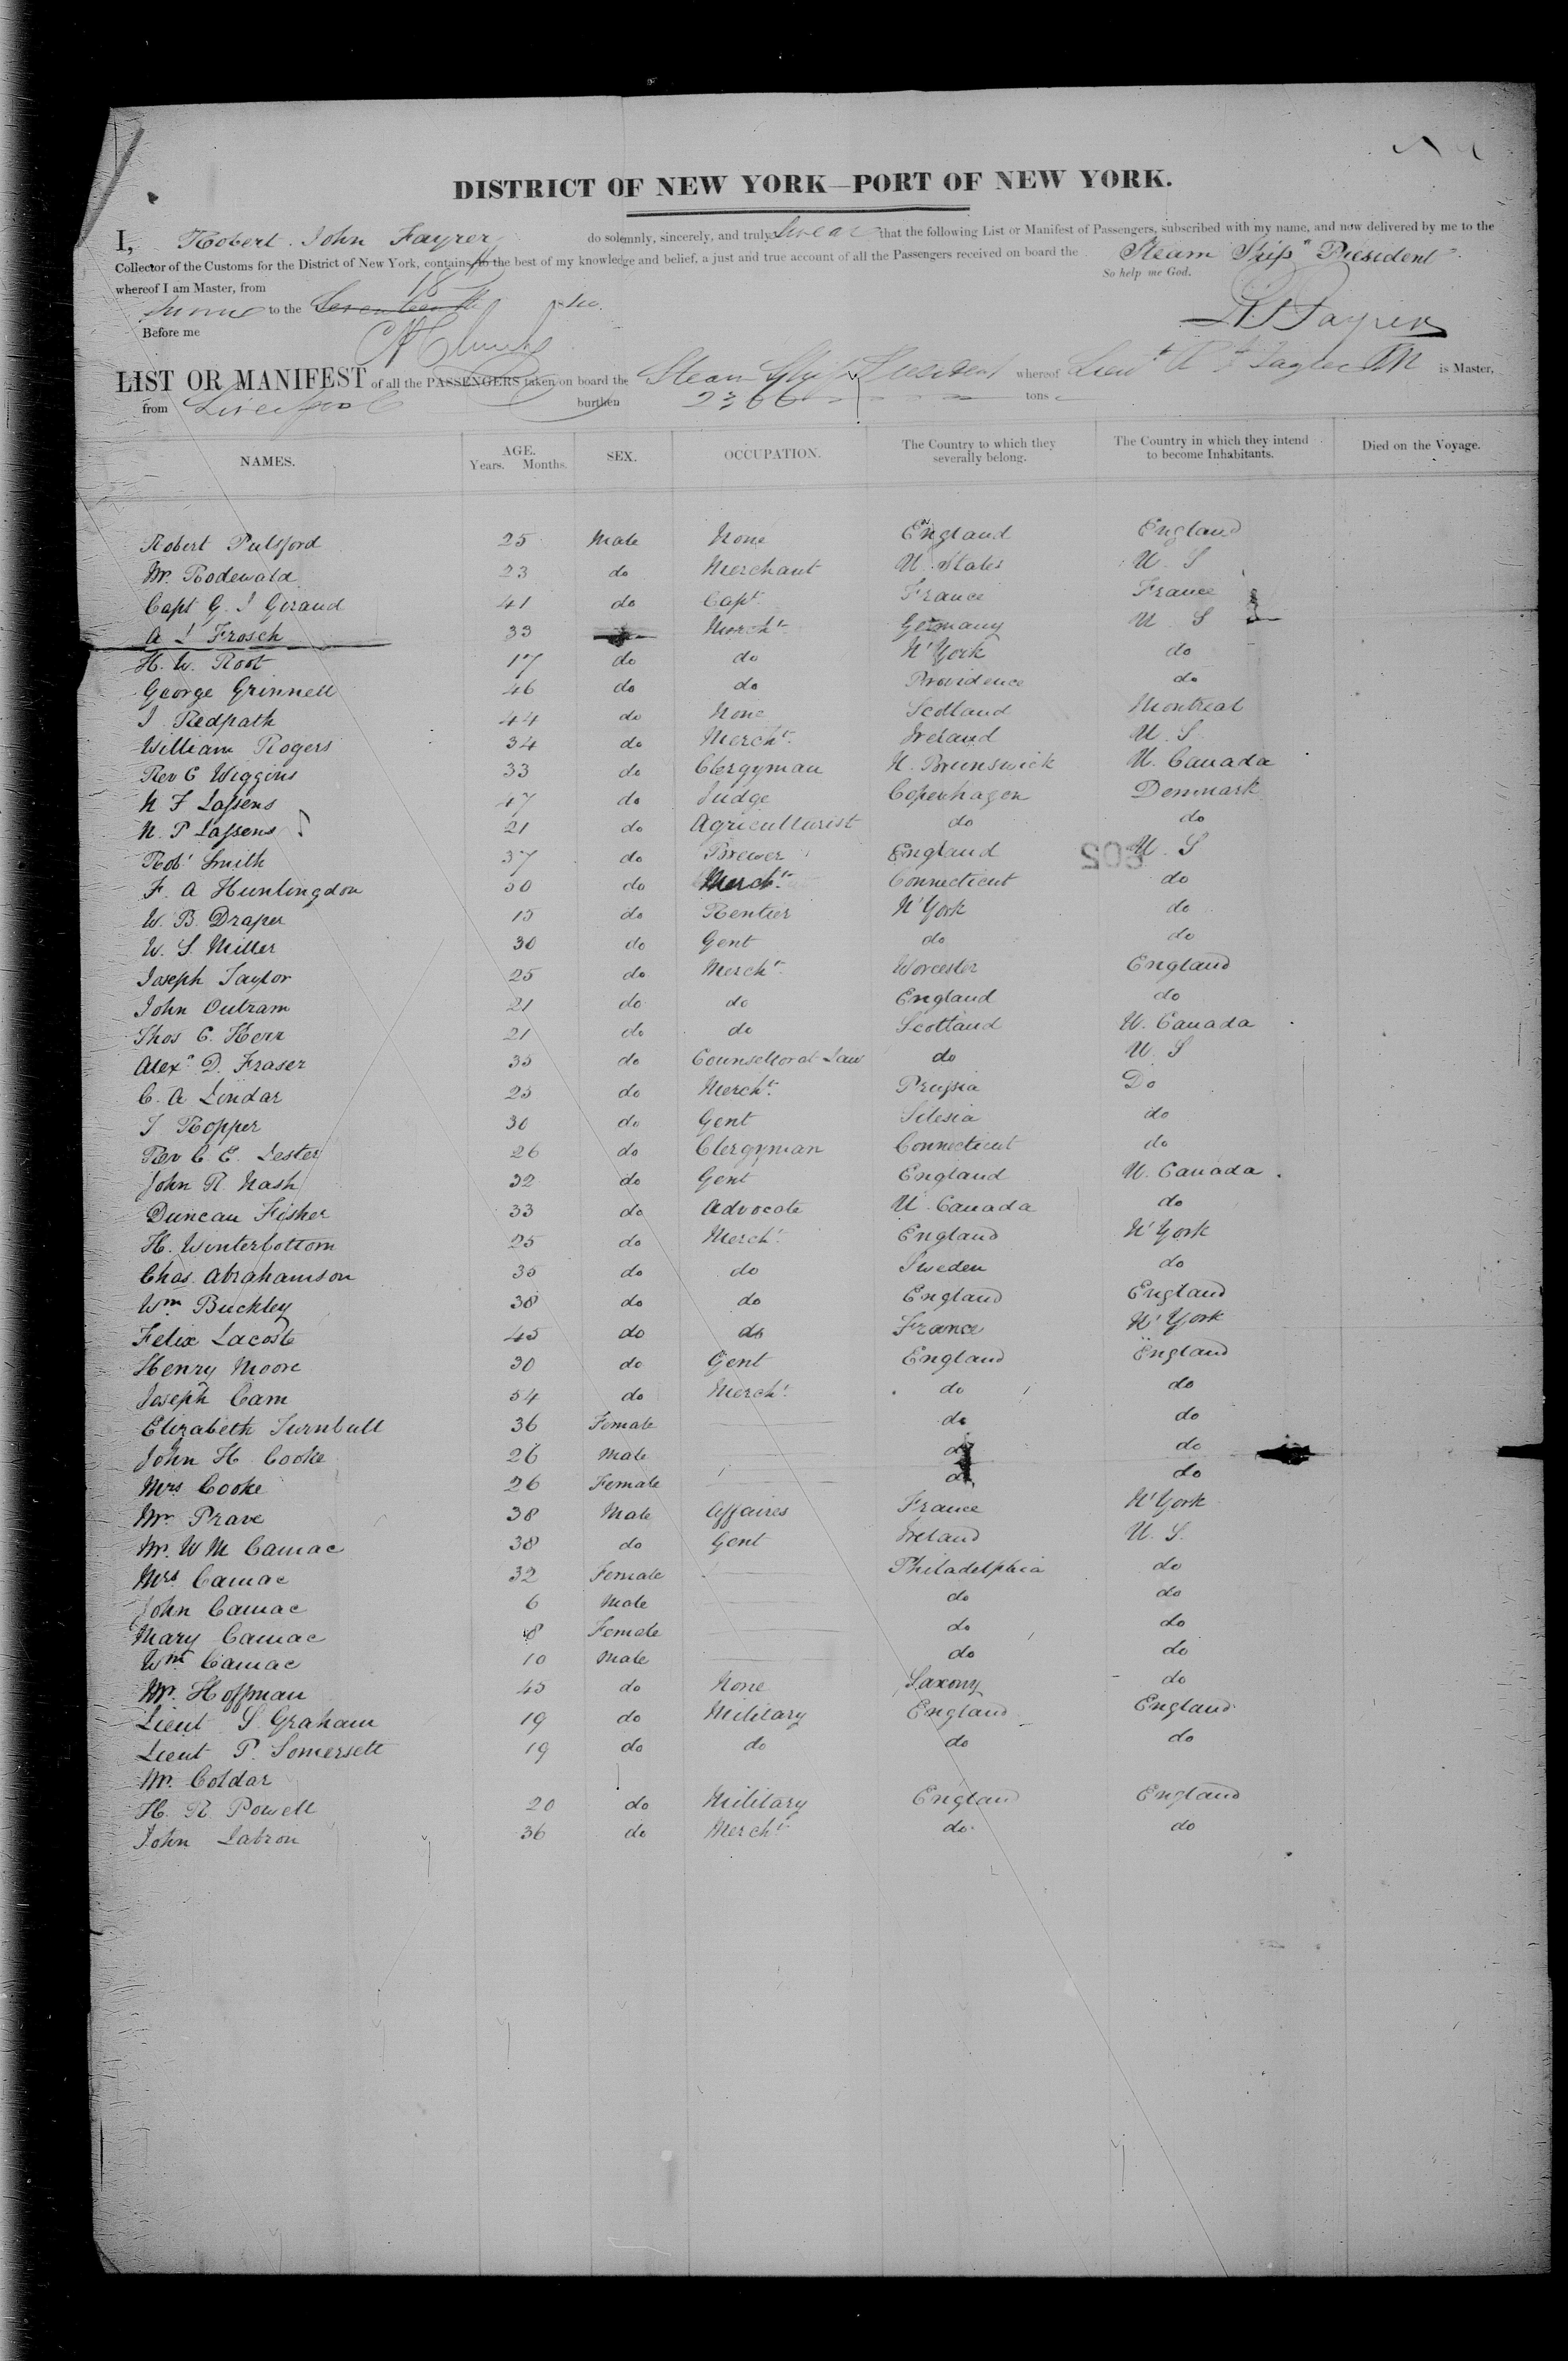 DISTRICT OF NEW YORK—PORT OF NEW YORK.
I, Robert John Fayrer do solemnly, sincerely, and truly swear that the following List or Manifest of Passengers, subscribed with my name, and now delivered by me to the
Collector of the Customs for the District of New York, contains, to the best of my knowledge and belief, a just and true account of all the Passengers received on board the Steam Ship "President"
whereof I am Master, from So help me God.
to the
Before me R J Fayrer
LIST OR MANIFEST of all the PASSENGERS taken on board the Steam Ship President whereof Lieut R J Fayrer RN is Master,
from Liverpool burthen 2366 tons
NAMES. AGE. Years. Months. SEX. OCCUPATION. The Country to which they severally belong. The Country in which they intend to become Inhabitants. Died on the Voyage.
Robert Pulsford 25 Male None England England
Mr. Rodewald 23 do Merchant U. States U. S
Capt G. J Geraud 41 do Capt. France France
A J Frosch 33 Mercht. Germany U. S
H. W. Root 17 do do N'York do
George Grinnell 46 do do Providence do
J Redpath 44 do None Scotland Montreal
William Rogers 34 do Mercht. Ireland U. S
Rev C Wiggins 33 do Clergyman N. Brunswick U. Canada
N F Lassens 47 do Judge Copenhagen Denmark
N. P Lassens 21 do Agriculturist do do
Robt Smith 37 do Brewer England U. S
F. A Huntingdon 30 do Mercht. Connecticut do
W. B. Draper 15 do Rentier N'York do
W. S. Miller 30 do Gent do do
Joseph Taylor 25 do Mercht. Worcester England
John Outram 21 do do England do
Thos C. Kerr 21 do do Scotland U. Canada
Alexr D. Fraser 35 do Counsellor at Law do U. S
C. A Lindar 25 do Mercht. Prussia Do
J Ropper 30 do Gent Silesia do
Rev C. E. Lester 26 do Clergyman Connecticut do
John R. Nash 32 do Gent England U. Canada
Duncan Fisher 33 do Advocate U. Canada do
H. Winterbottom 25 do Mercht. England N'York
Chas. Abrahamson 35 do do Sweden do
Wm Buckley 38 do do England England
Felix Lacoste 45 do do France N'York
Henry Moore 30 do Gent England England
Joseph Cam 54 do Mercht. do do
Elizabeth Turnbull 36 Female do do
John H Cooke 26 Male do do
Mrs Cooke 26 Female do do
Mr. Prave 38 Male Affaires France N'York
Mr. W M Camac 38 do Gent Ireland U. S.
Mrs Camac 32 Female Philadelphia do
John Camac 6 Male do do
Mary Camac 8 Female do do
Wm Camac 10 Male do do
Mr. Hoffman 45 do None Saxony do
Lieut S. Graham 19 do Military England England
Lieut P. Somersett 19 do do do do
Mr. Coldar
H. R. Powell 20 do Military England England
John Latron 36 do Mercht. do do